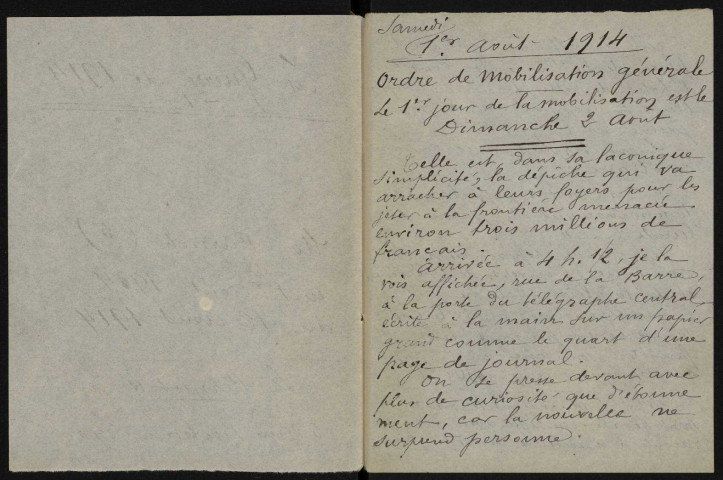 Samedi
1er Août 1914
Ordre de Mobilisation générale
Le 1er jour de la mobilisation est le
Dimanche 2 Août
Telle est, dans sa laconique
simplicité, la dépêche qui va
arracher à leurs foyers pour les
jeter à la frontière menacée
environ trois millions de
français.
Arrivée à 4 h. 12, je la
vois affichée, rue de la Barre,
à la porte du télégraphe central,
écrite à la main sur un papier
grand comme le quart d'une
page de journal.
On se presse devant avec
plus de curiosité que d'étonne
ment, car la nouvelle ne
surprend personne.